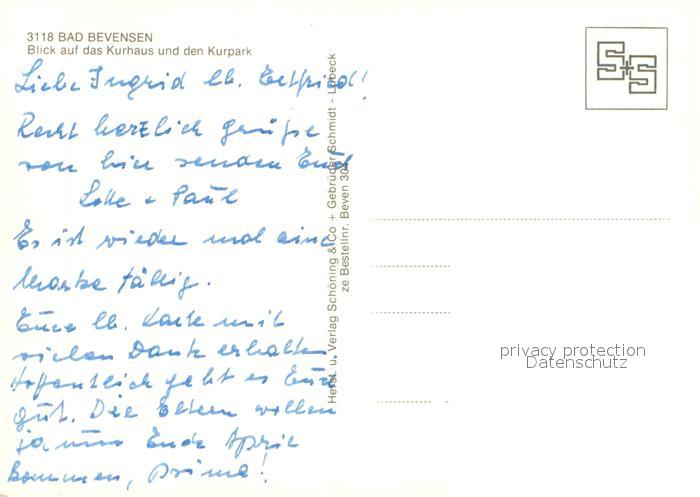 3118 BAD BEVENSEN
Blick auf das Kurhaus und den Kurpark
Liebe Ingrid lb. Estfrid!
Recht herzlich grüße
von hier senden Euch
Lotte + Paul
Es ist wieder mal eine
Marke fällig.
Eure lb. Karte mit
vielen Dank erhalten
Hoffentlich geht es Euch
gut. Die Eltern wollen
ja nun Ende April
kommen, Prima!
Herst. u. Verlag Schöning & Co + Gebrüder Schmidt - Lübeck
ze Bestellnr. Beven 304
S+S
privacy protection
Datenschutz